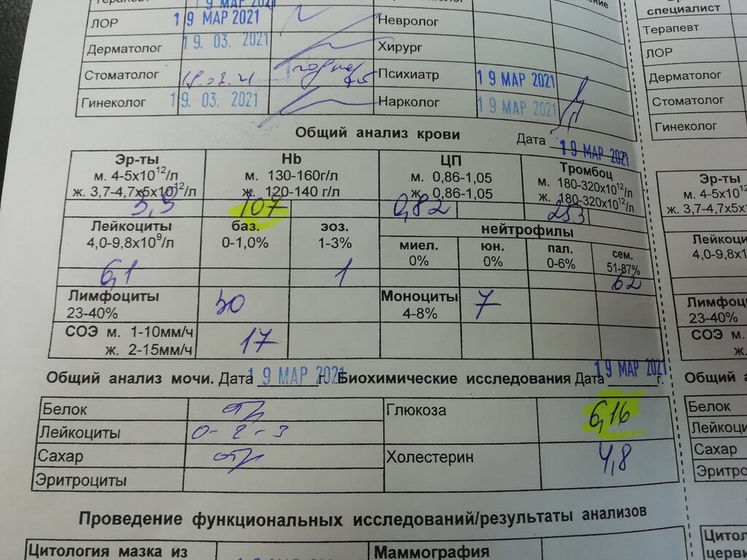 Терапевт 19 МАР 2021
ЛОР 19 МАР 2021 Невролог
Дерматолог 19. 03. 2021 Хирург
Стоматолог Психиатр 19 МАР 2021
Гинеколог 19. 03. 2021 Нарколог 19 МАР 2021
специалист
Терапевт
ЛОР
Дерматолог
Стоматолог
Гинеколог
Общий анализ крови Дата 19 МАР 2021
Эр-ты Hb ЦП Тромбоц
м. 4-5х10¹²/л м. 130-160г/л м. 0,86-1,05 м. 180-320х10¹²/л
ж. 3,7-4,7х5х10¹²/л ж. 120-140 г/л ж. 0,86-1,05 ж. 180-320х10¹²/л
107 0,82 253
Лейкоциты баз. эоз. нейтрофилы
4,0-9,8х10⁹/л 0-1,0% 1-3% миел. юн. пал. сем.
0% 0% 0-6% 51-87%
6,1 1 62
Лимфоциты 30 Моноциты 7
23-40% 4-8%
СОЭ м. 1-10мм/ч 17
ж. 2-15мм/ч
Общий анализ мочи. Дата 19 МАР 2021 г. Биохимические исследования Дата 19 МАР 2021 г.
Белок отр Глюкоза 6,16
Лейкоциты 0-2-3
Сахар отр Холестерин 4,8
Эритроциты
Проведение функциональных исследований/результаты анализов
Цитология мазка из Маммография
Эр-ты
м. 4-5х10¹
ж. 3,7-4,7х
Лейкоци
4,0-9,8х10
Лимфоц
23-40%
СОЭ м.
ж.
Общий а
Белок
Лейкоци
Сахар
Эритроц
Цитоло
церви